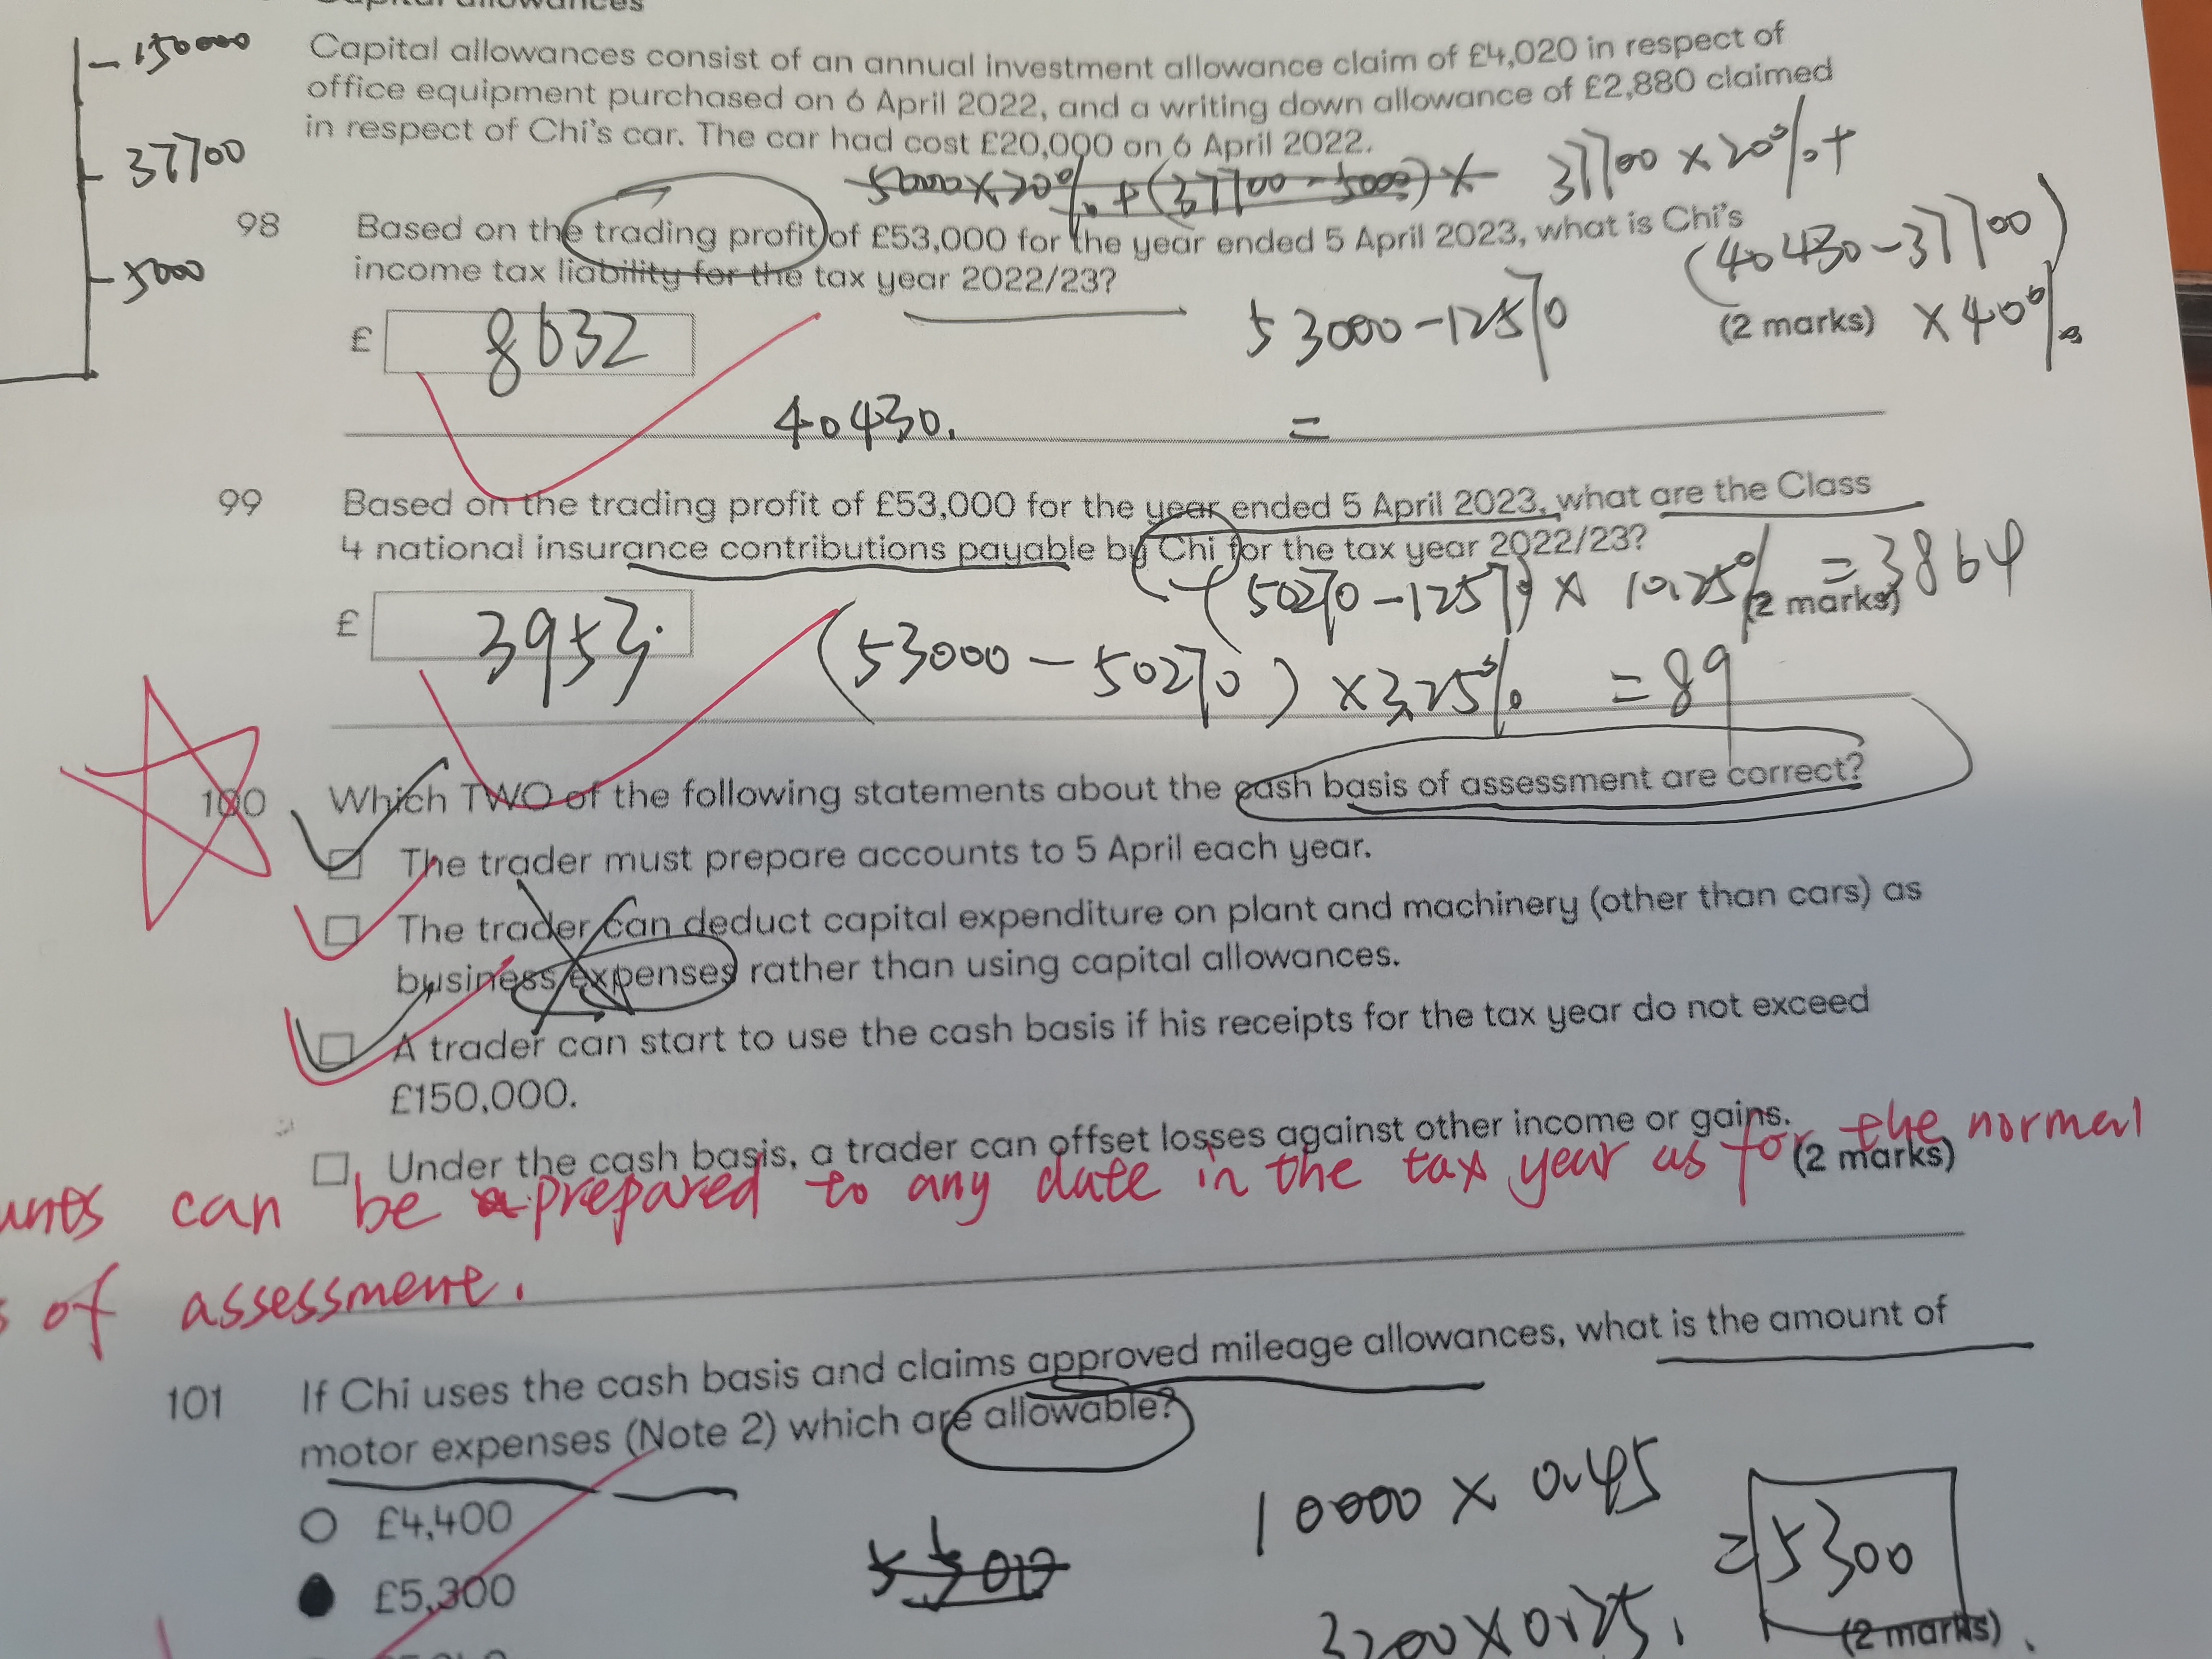 Capital allowances
150000
Capital allowances consist of an annual investment allowance claim of £4,020 in respect of
office equipment purchased on 6 April 2022, and a writing down allowance of £2,880 claimed
in respect of Chi's car. The car had cost £20,000 on 6 April 2022.
37700
5000×20% + (37700-5000)×
37700 × 20% +
98 Based on the trading profit of £53,000 for the year ended 5 April 2023, what is Chi's
(40430-37700)
5000
income tax liability for the tax year 2022/23?
£ 8632
53000-12570
(2 marks)
×40%
40430.
=
99 Based on the trading profit of £53,000 for the year ended 5 April 2023, what are the Class
4 national insurance contributions payable by Chi for the tax year 2022/23?
(50270-12570) × 10.25% = 3864
(2 marks)
£ 3953.
(53000-50270) ×3.25% = 89
100 Which TWO of the following statements about the cash basis of assessment are correct?
The trader must prepare accounts to 5 April each year.
The trader can deduct capital expenditure on plant and machinery (other than cars) as
business expenses rather than using capital allowances.
A trader can start to use the cash basis if his receipts for the tax year do not exceed
£150,000.
Under the cash basis, a trader can offset losses against other income or gains.
(2 marks)
unts can be prepared to any date in the tax year as for the normal
s of assessment.
101 If Chi uses the cash basis and claims approved mileage allowances, what is the amount of
motor expenses (Note 2) which are allowable?
£4,400
10000 × 0.45
£5,300
= 5300
3200×0.25.
(2 marks)